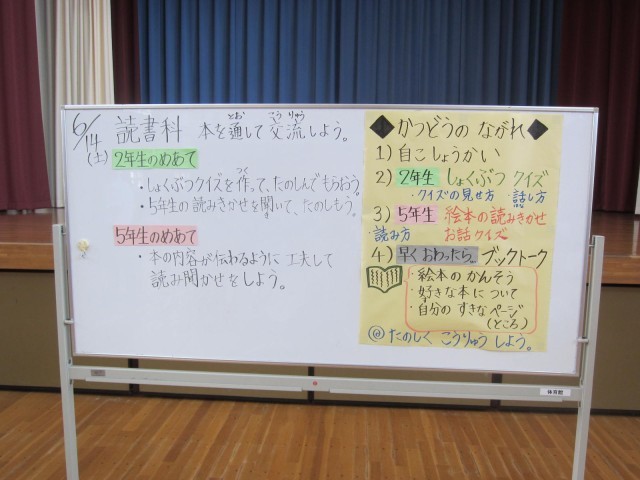 6/14
(土)
読書科 本を通して交流しよう。
とお こうりゅう
2年生のめあて
・しょくぶつクイズを作って、たのしんでもらおう。
つく
・5年生の読みきかせを聞いて、たのしもう。
5年生のめあて
・本の内容が伝わるように工夫して
読み聞かせをしよう。
◆かつどうの ながれ◆
1) 自こしょうかい
2) 2年生 しょくぶつ クイズ
・クイズの見せ方 ・話し方
はな
3) 5年生 絵本の読みきかせ
読み方 お話クイズ
4) 早くおわったら。ブックトーク
・絵本の かんそう
・好きな本について
す
・自分の すきなページ
(ところ)
◎たのしく こうりゅう しよう。
体育館